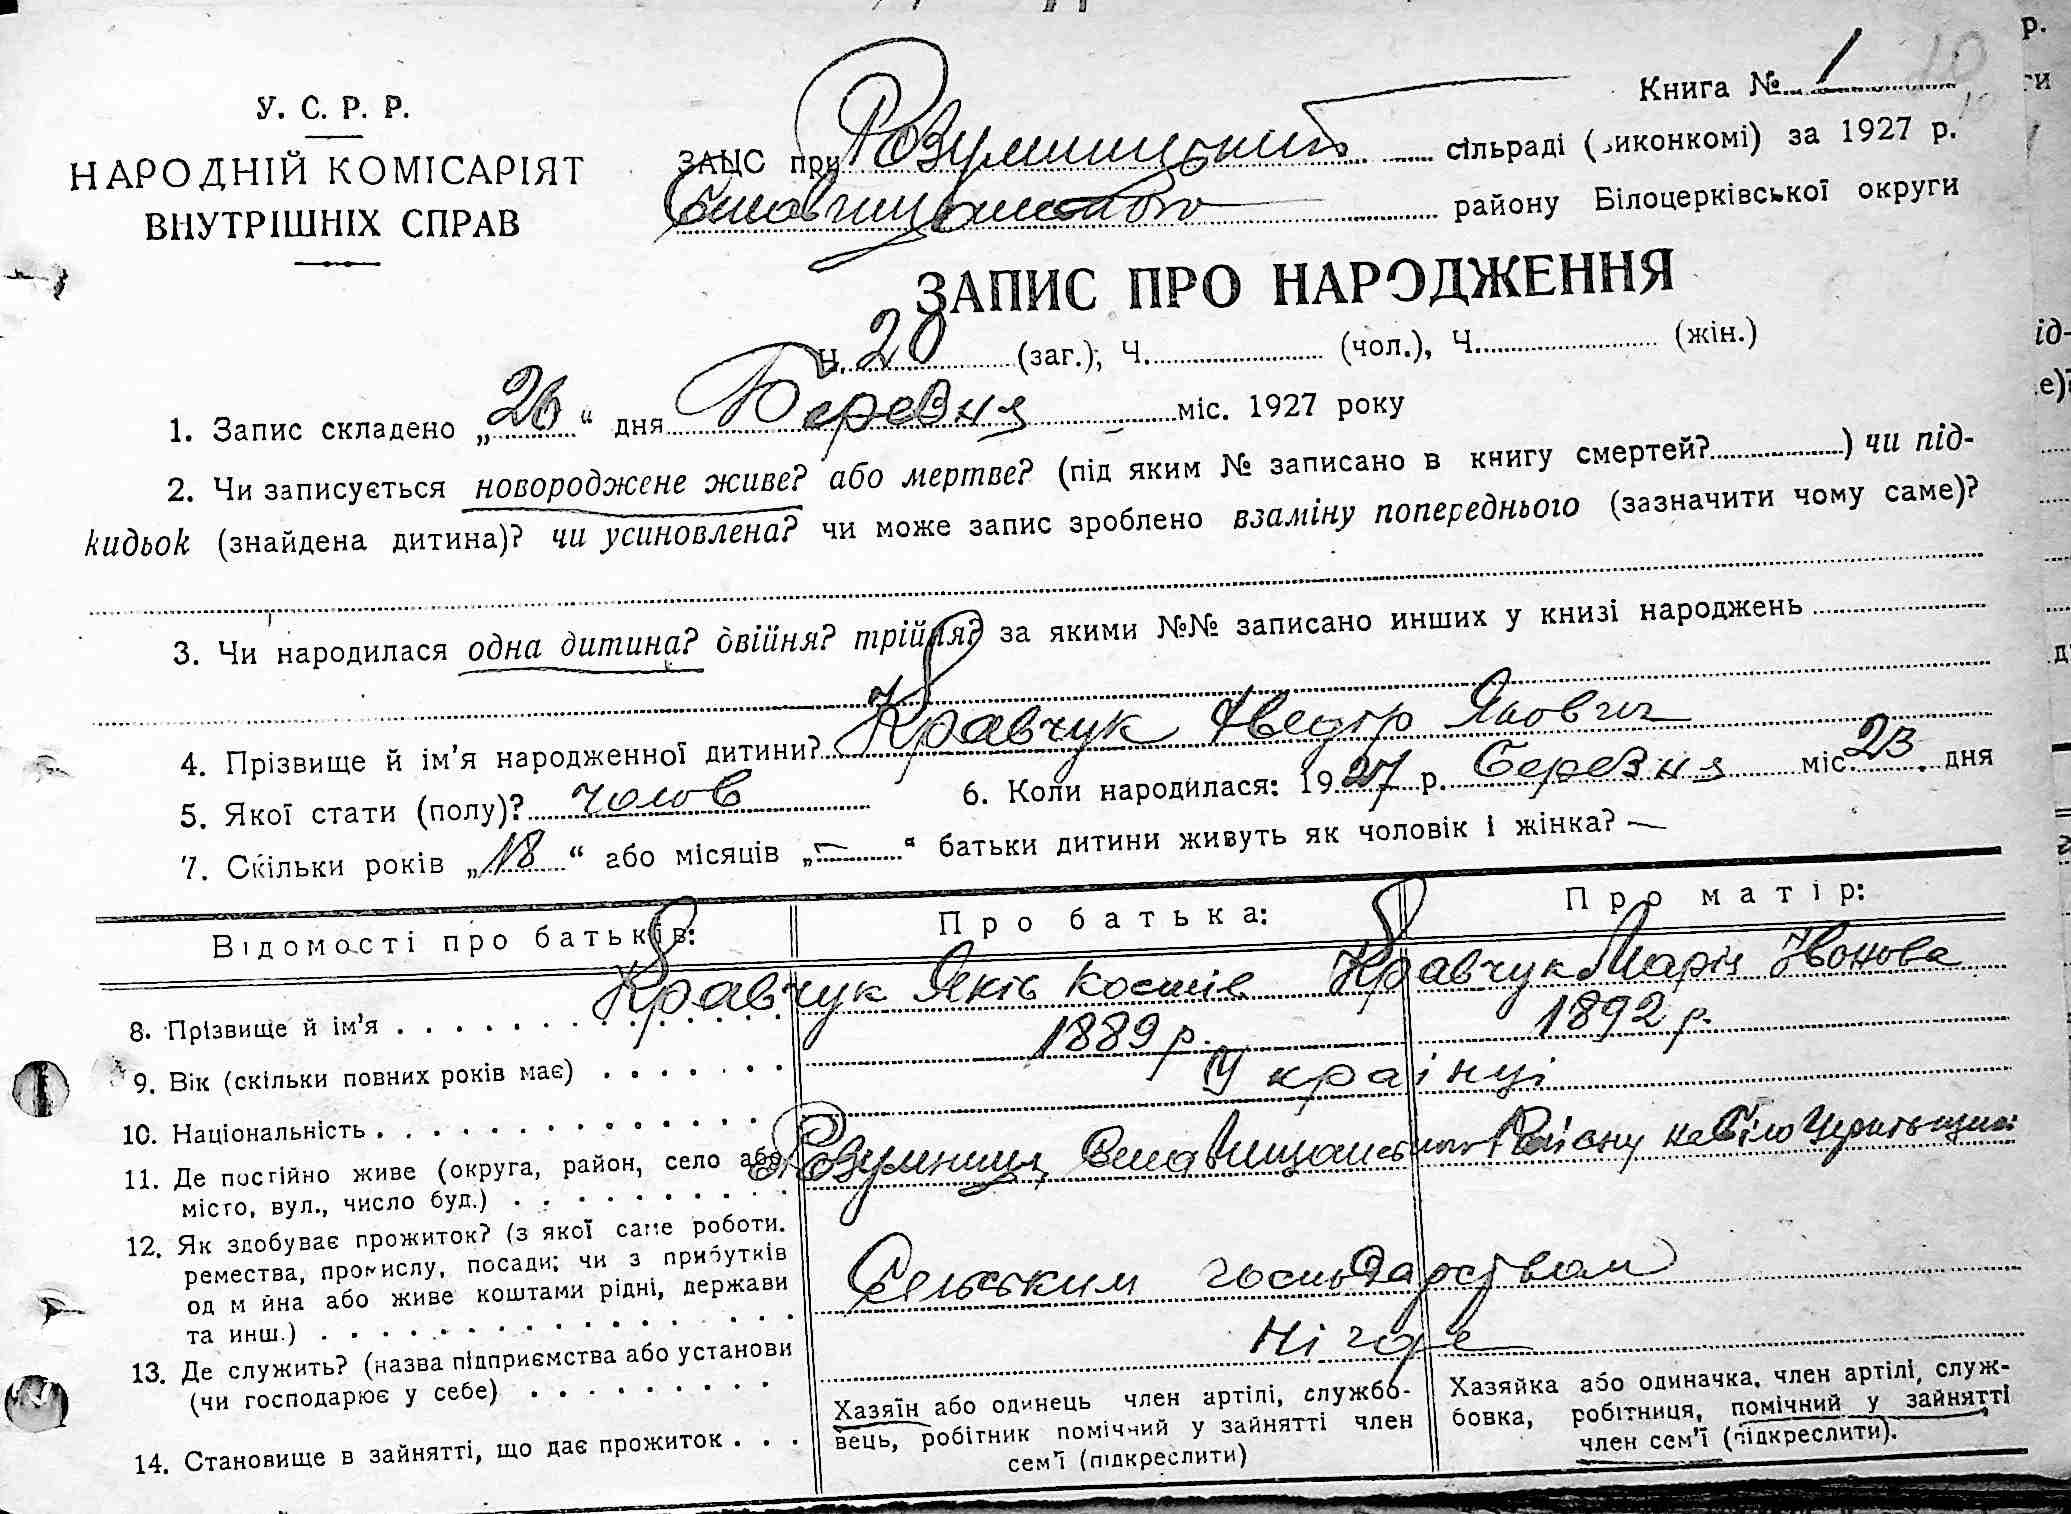 Книга № 1
У. С. Р. Р.
НАРОДНІЙ КОМІСАРІЯТ
ВНУТРІШНІХ СПРАВ
ЗАЦС при Розумницький сільраді (виконкомі) за 1927 р.
району Білоцерківської округи
ЗАПИС ПРО НАРОДЖЕННЯ
Ч. 20 (заг.), Ч. (чол.), Ч. (жін.)
1. Запис складено „26“ дня Березня міс. 1927 року
2. Чи записується новороджене живе? або мертве? (під яким № записано в книгу смертей?) чи під-
кидьок (знайдена дитина)? чи усиновлена? чи може запис зроблено взаміну попереднього (зазначити чому саме)?
3. Чи народилася одна дитина? двійня? трійня? за якими №№ записано инших у книзі народжень
4. Прізвище й ім’я народженної дитини? Кравчук Якович
5. Якої стати (полу)? чолов 6. Коли народилася: 1927 р. Березня міс. 23 дня
7. Скільки років „18“ або місяців „—“ батьки дитини живуть як чоловік і жінка? —
Відомості про батьків: Про батька: Про матір:
8. Прізвище й ім’я Кравчук Яків Костів Кравчук Марія Івонова
9. Вік (скільки повних років має) 1889 р. 1892 р.
10. Національність Українці
11. Де постійно живе (округа, район, село або Розумниця, Району на
місто, вул., число буд.)
12. Як здобуває прожиток? (з якої саме роботи.
ремества, промислу, посади; чи з прибутків
од м йна або живе коштами рідні, держави Сельським господарством
та инш.)
13. Де служить? (назва підприємства або установи Нігде
(чи господарює у себе)
14. Становище в зайнятті, що дає прожиток
Хазяїн або одинець член артілі, службо-
вець, робітник помічний у зайнятті член
сем’ї (підкреслити)
Хазяйка або одиначка, член артілі, служ-
бовка, робітниця, помічний у зайнятті
член сем’ї (підкреслити).